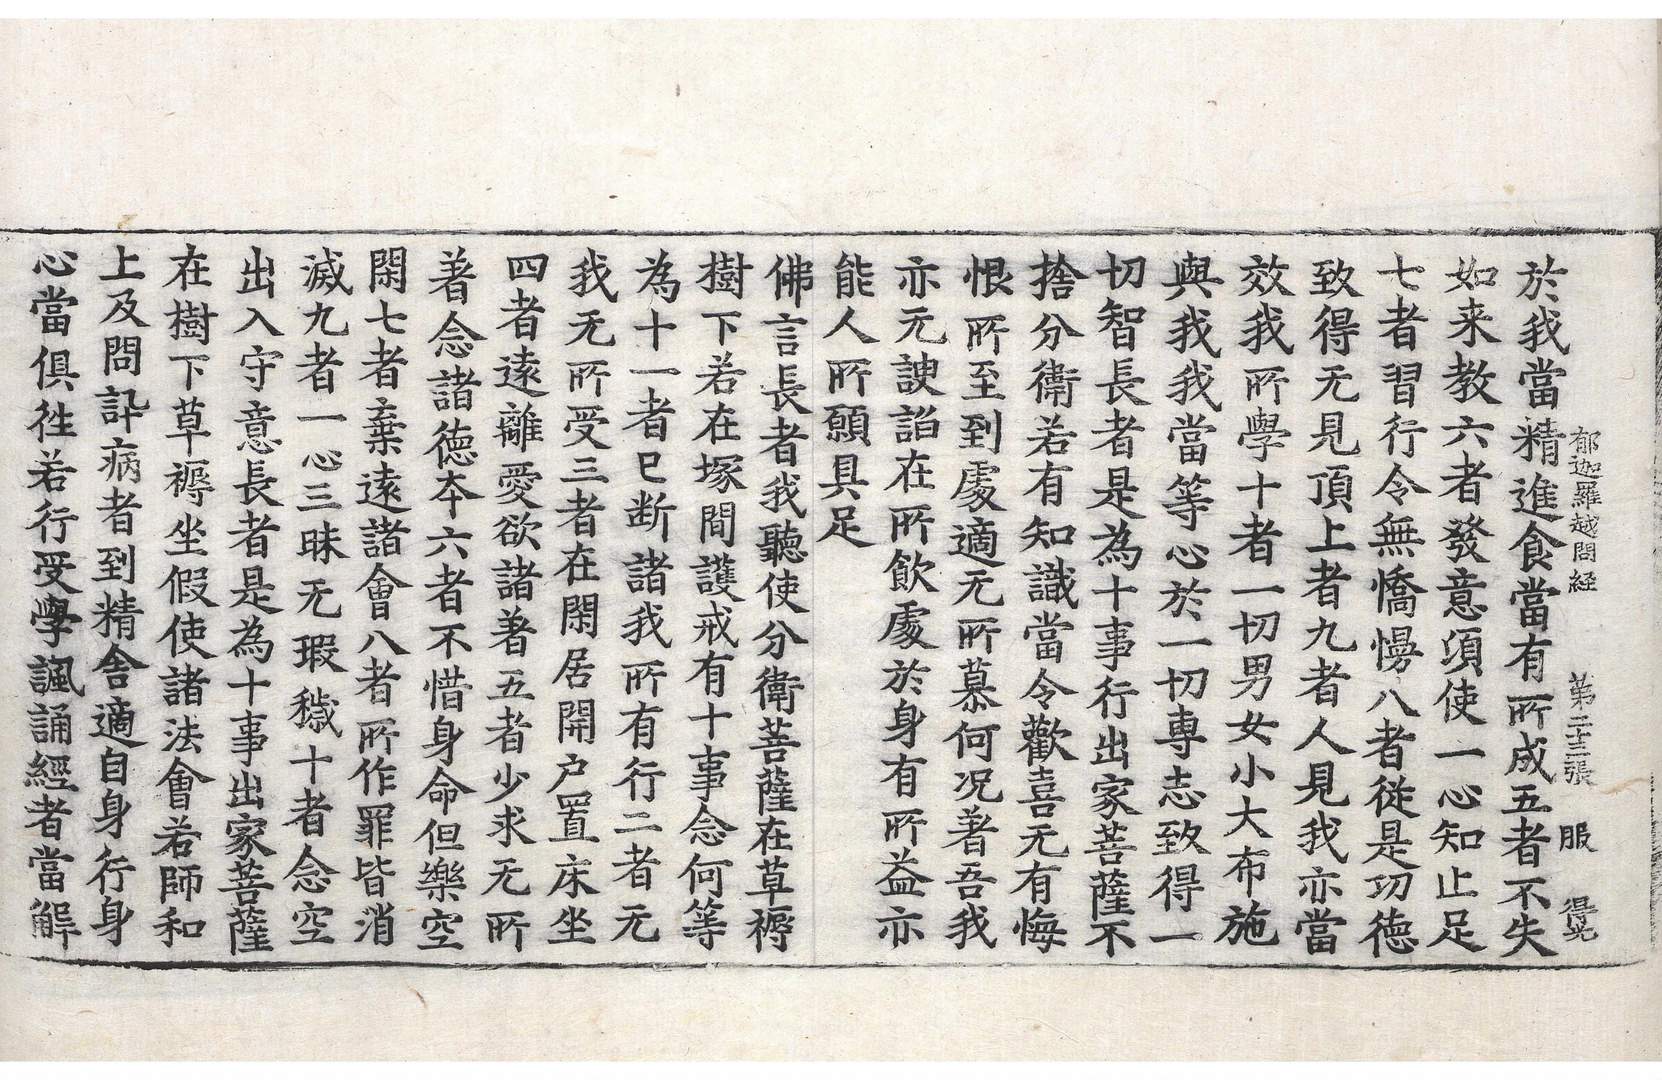 郁迦羅越問経　第二十三張　服　得光
於我當精進食當有所成五者不失
如来教六者發意須使一心知止足
七者習行令無憍慢八者從是功德
致得无見頂上者九者人見我亦當
效我所學十者一切男女小大布施
與我我當等心於一切專志致得一
切智長者是為十事行出家菩薩不
捨分衛若有知識當令歡喜无有悔
恨所至到處適无所慕何况著吾我
亦无諛諂在所飲處於身有所益亦
能人所願具足
佛言長者我聽使分衛菩薩在草褥
樹下若在塚間護戒有十事念何等
為十一者已断諸我所有行二者无
我无所受三者在閑居開户置床坐
四者遠離愛欲諸著五者少求无所
著念諸德本六者不惜身命但樂空
閑七者棄遠諸會八者所作罪皆消
滅九者一心三昧无瑕穢十者念空
出入守意長者是為十事出家菩薩
在樹下草褥坐假使諸法會若師和
上及問訊病者到精舍適自身行身
心當俱徃若行受學諷誦經者當解